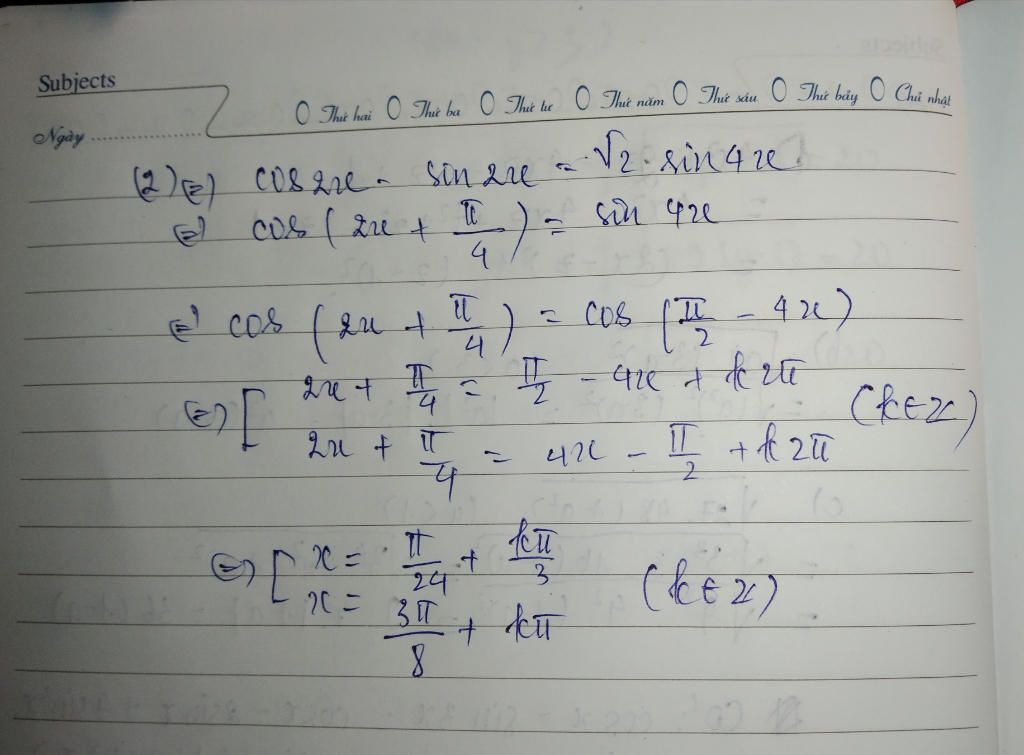 Subjects
Ngày
Thứ hai Thứ ba Thứ tư Thứ năm Thứ sáu Thứ bảy Chủ nhật
(2) ⇔ cos 2x - sin 2x = √2 . sin 4x
⇔ cos (2x + π/4) = sin 4x
⇔ cos (2x + π/4) = cos (π/2 - 4x)
⇔ [ 2x + π/4 = π/2 - 4x + k2π
2x + π/4 = 4x - π/2 + k2π (k ∈ Z)
⇔ [ x = π/24 + kπ/3
x = 3π/8 + kπ (k ∈ Z)